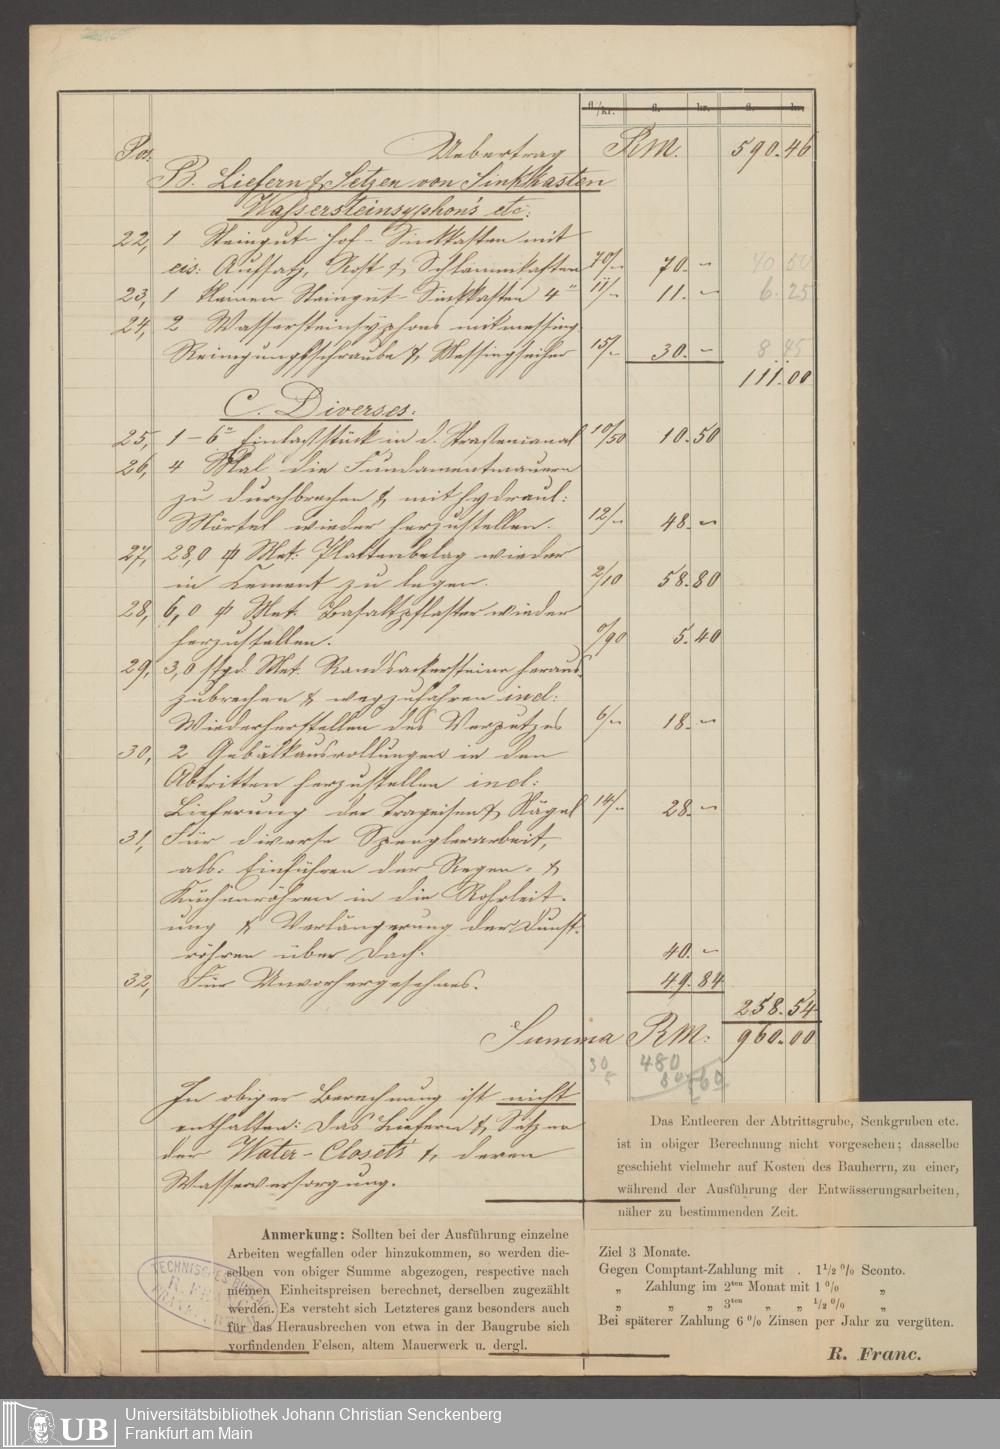 fl./kr. fl. kr. fl. kr.
Pos. Uebertrag RM. 590.46
B. Liefern & Setzen von Sinkkasten
Wassersteinsyphon's etc:
22, 1 Steingut- Hof- Sinkkasten mit
eis: Aufsatz, Rost & Schlammkasten 70/– 70.– 40 50
23, 1 kleinen Steingut-Sinkkasten 4" 11/– 11.– 6.25
24, 2 Wassersteinsyphons mit messing
Reinigungsschraube & Messingseiher 15/– 30.– 8 45
111.00
C. Diverses:
25, 1 – 6" Einlaßstück in d. Strassencanal 10/50 10.50
26, 4 Mal die Fundamentmauern
zu durchbrechen & mit hydraul:
Mörtel wieder herzustellen. 12/– 48.–
27, 28,0 □ Met: Plattenbelag wieder
in Cement zu legen. 2/10 58.80
28, 6,0 □ Met Basaltpflaster wieder
herzustellen. 0/90 5.40
29, 3,0 stgd. Met. Randsackersteine heraus
zubrechen & wegzufahren incl:
Wiederherstellen des Verputzes 6/– 18.–
30, 2 Gebälkausrollungen in den
Abtritten herzustellen incl:
Lieferung der Trageisen & Nägel 14/– 28.–
31, Für diverse Spenglerarbeit,
als: Einführen der Regen- &
Küchenröhren in die Rohrleit-
ung & Verlängerung der Dunst-
röhren über Dach. 40.–
32, Für Unvorhergesehnes. 49.84
258.54
Summa RM: 960.00
30 480
5 80 560
In obiger Berechnung ist nicht
enthalten: Das Liefern & Setzen
der Water-Closets &, deren
Wasserversorgung.
Das Entleeren der Abtrittsgrube, Senkgruben etc.
ist in obiger Berechnung nicht vorgesehen; dasselbe
geschieht vielmehr auf Kosten des Bauherrn, zu einer,
während der Ausführung der Entwässerungsarbeiten,
näher zu bestimmenden Zeit.
Anmerkung: Sollten bei der Ausführung einzelne
Arbeiten wegfallen oder hinzukommen, so werden die-
selben von obiger Summe abgezogen, respective nach
meinen Einheitspreisen berechnet, derselben zugezählt
werden. Es versteht sich Letzteres ganz besonders auch
für das Herausbrechen von etwa in der Baugrube sich
vorfindenden Felsen, altem Mauerwerk u. dergl.
TECHNISCHES BUREAU
R. FRANC
Ziel 3 Monate.
Gegen Comptant-Zahlung mit . 1 1/2 % Sconto.
„ Zahlung im 2ten Monat mit 1 % „
„ „ „ 3ten „ „ 1/2 % „
Bei späterer Zahlung 6 % Zinsen per Jahr zu vergüten.
R. Franc.
UB
Universitätsbibliothek Johann Christian Senckenberg
Frankfurt am Main